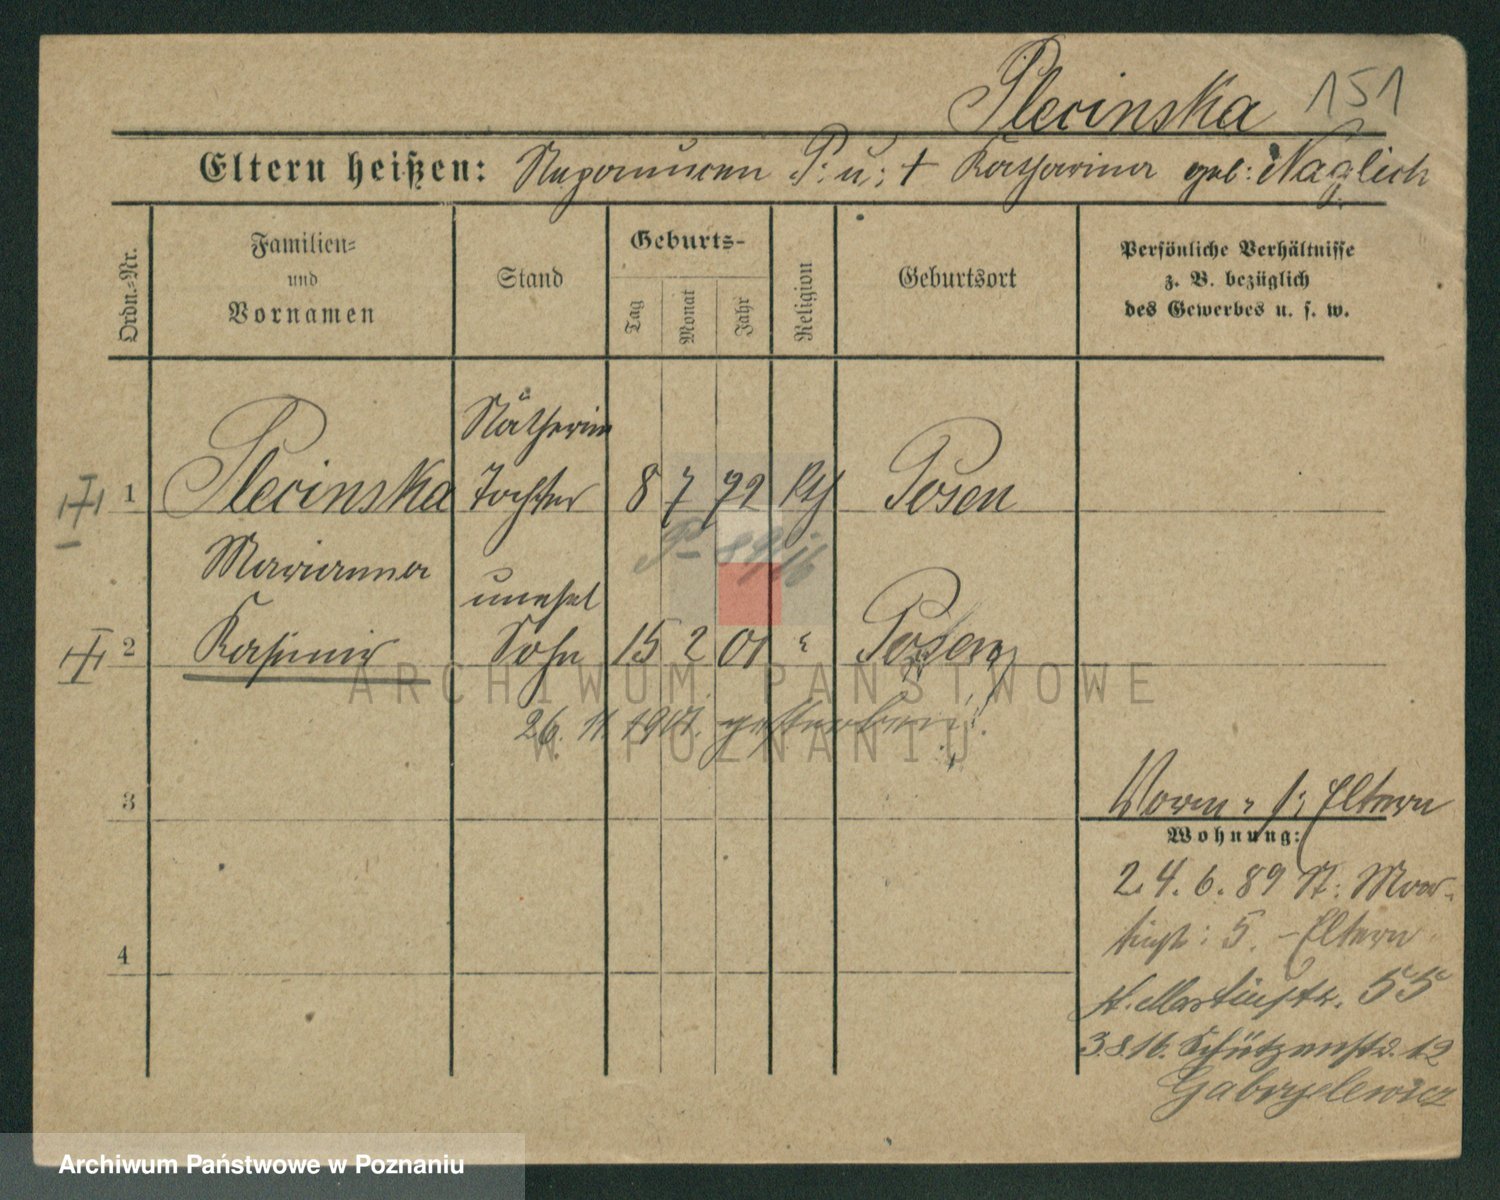 Plecinska 151
Eltern heißen: Nepomucen P. u. + Katharina geb: Naglich
Ordn.-Nr.
Familien-
und
Vornamen
Stand
Geburts-
Tag
Monat
Jahr
Religion
Geburtsort
Persönliche Verhältnisse
z. B. bezüglich
des Gewerbes u. s. w.
Nätherin
1 Plecinska Tochter 8 7 72 kth Posen
Marianna
unehel
2 Kasimir Sohn 15 2 01 " Posen
ARCHIWUM PAŃSTWOWE
26. 11. 1917. gestorben!
W POZNANIU
3
Eltern
Wohnung:
24. 6. 89 St: Mar-
tinstr: 5. - Eltern
St. Martinstr. 55
3.8.16. Schützenstr. 12
Gabryelewicz
4
Archiwum Państwowe w Poznaniu